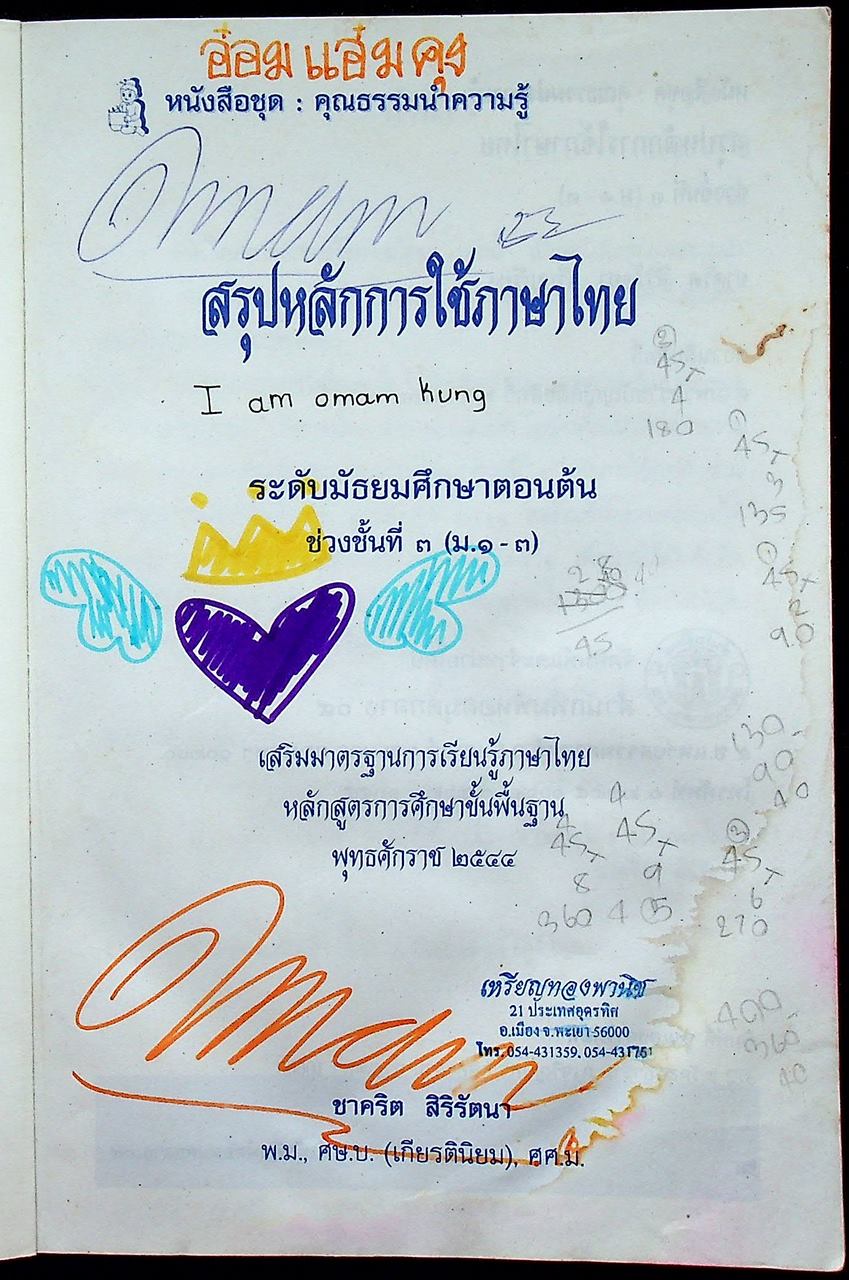 อ๋อมแอ๋มคุง
หนังสือชุด : คุณธรรมนำความรู้
Omam
สรุปหลักการใช้ภาษาไทย
I am omam kung
ระดับมัธยมศึกษาตอนต้น
ช่วงชั้นที่ ๓ (ม.๑ - ๓)
2
45x
4
180
1
45x
3
135
1
45x
2
90
45
เสริมมาตรฐานการเรียนรู้ภาษาไทย
หลักสูตรการศึกษาขั้นพื้นฐาน
พุทธศักราช ๒๕๔๔
130-
90
40
4
45x
8
360
4
45x
9
405
3
45x
6
270
400
360
40
Omam
เหรียญทองพานิช
21 ประเทศอุดรทิศ
อ.เมือง จ.พะเยา 56000
โทร. 054-431359, 054-431751
ชาคริต สิริรัตนา
พ.ม., ศษ.บ. (เกียรตินิยม), ศศ.ม.